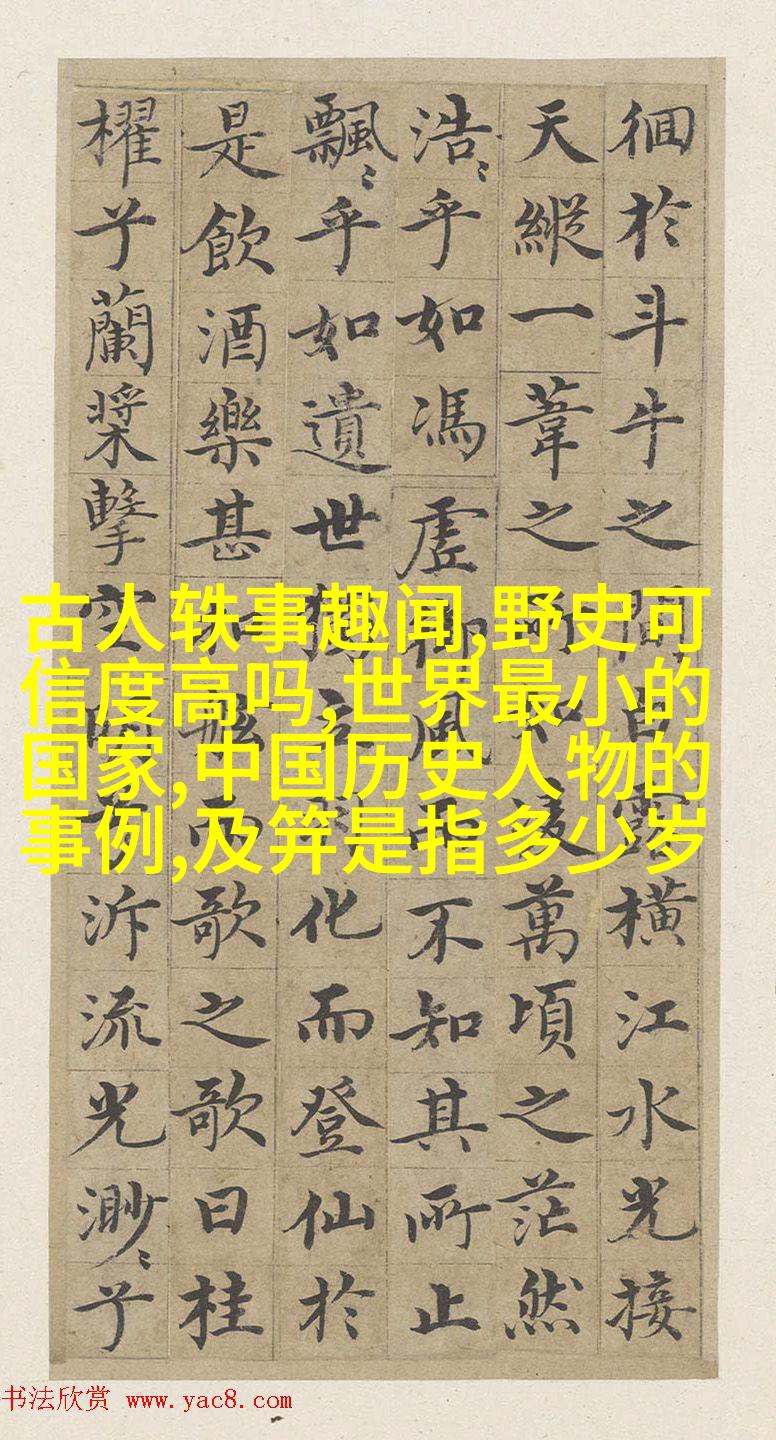 徊於斗牛之間白露橫江水光接
天縱一葦之所如凌萬頃之茫然
浩〻乎如馮虛御風而不知其所止
飄〻乎如遺世獨立羽化而登仙於
是飲酒樂甚扣舷而歌之歌曰桂
櫂兮蘭槳擊空明兮泝流光渺〻兮
古人轶事趣闻,野史可
信度高吗,世界最小的
国家,中国历史人物的
事例,及笄是指多少岁
书法欣赏 www.yac8.com